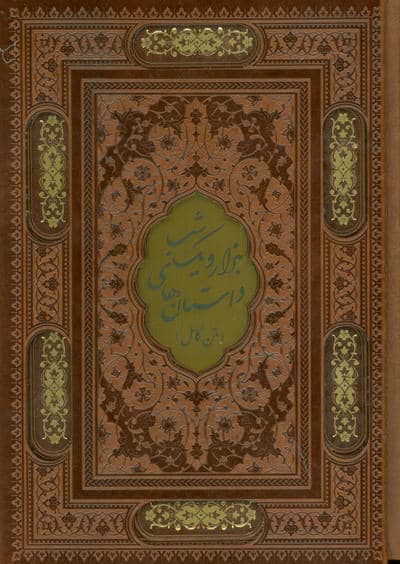 داستان‌های
هزار و یکشب
(متن کامل)